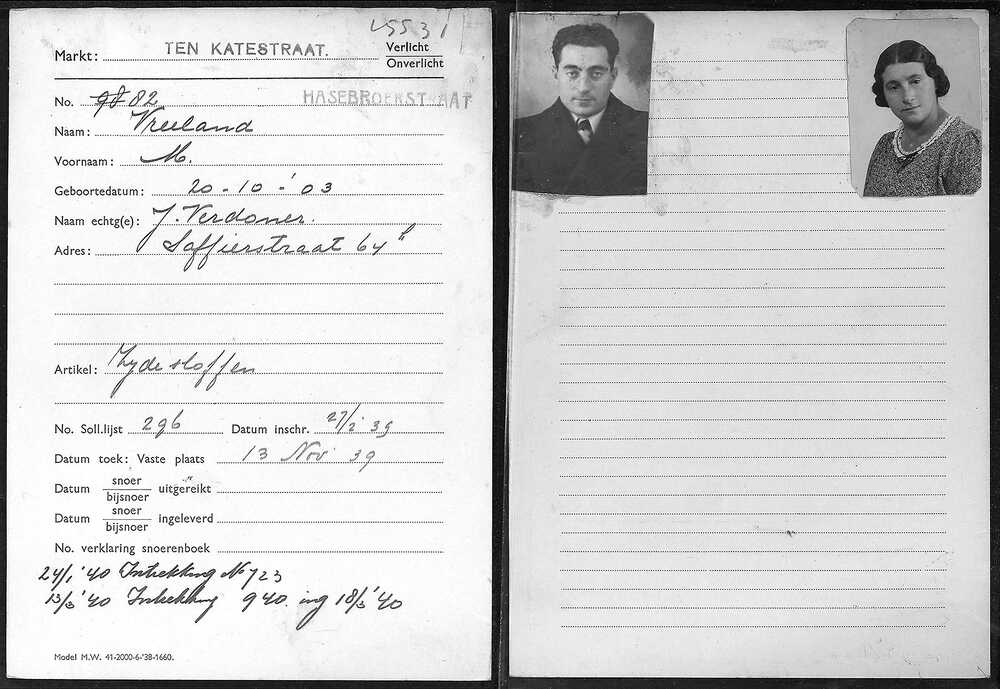 45531
Markt: TEN KATESTRAAT. Verlicht
Onverlicht
No. 98 82 HASEBROEKSTRAAT
Naam: Vreeland
Voornaam: M.
Geboortedatum: 20-10-'03
Naam echtg(e): J. Verdoner.
Adres: Saffierstraat 64 II
Artikel: Zyde stoffen
No. Soll.lijst 296 Datum inschr. 27/2 '39
Datum toek: Vaste plaats 13 Nov 39
Datum snoer/bijsnoer uitgereikt
Datum snoer/bijsnoer ingeleverd
No. verklaring snoerenboek
24/1 '40 Intrekking No 723
13/3 '40 Intrekking 940. ing 18/3 '40
Model M.W. 41-2000-6-'38-1660.